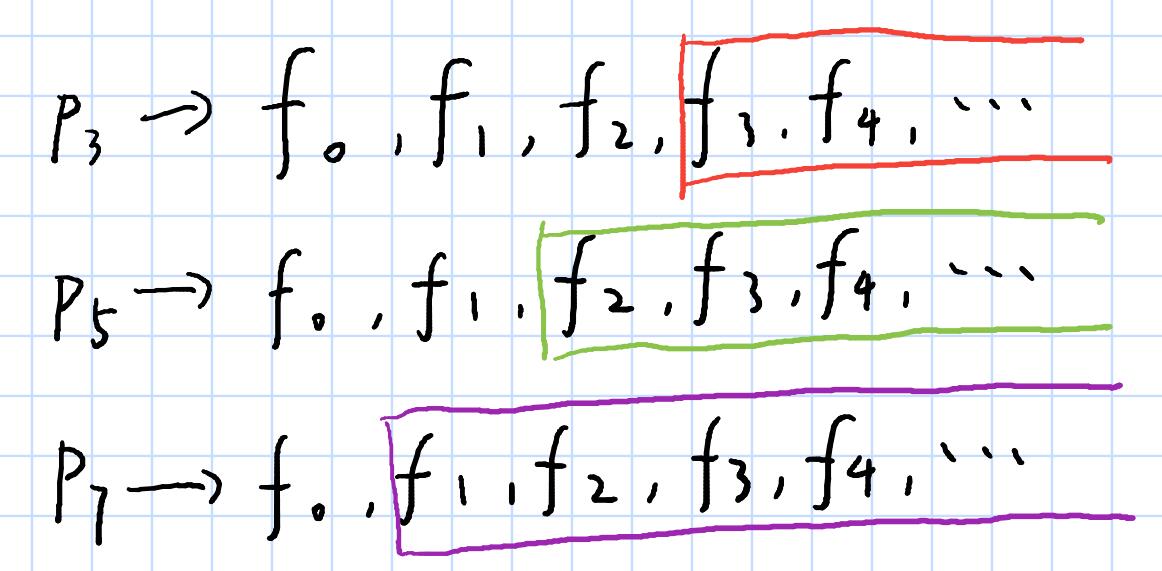 P₃ → f₀, f₁, f₂, f₃, f₄, ⋯
P₅ → f₀, f₁, f₂, f₃, f₄, ⋯
P₇ → f₀, f₁, f₂, f₃, f₄, ⋯